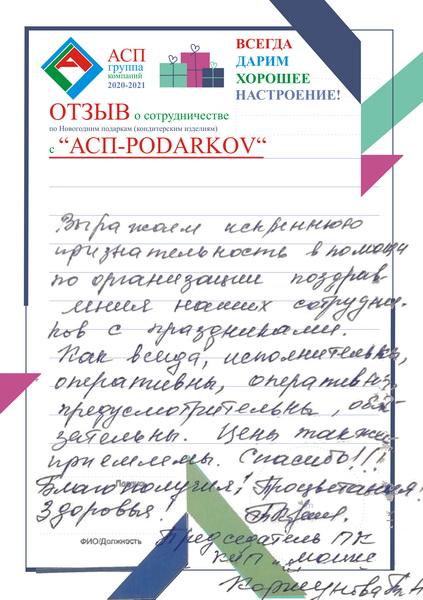 АСП
группа
компаний
2020-2021
ВСЕГДА
ДАРИМ
ХОРОШЕЕ
НАСТРОЕНИЕ!
ОТЗЫВ о сотрудничестве
по Новогодним подаркам (кондитерским изделиям)
с “АСП-PODARKOV“
Выражаем искреннюю
признательность в помощи
по организации поздрав
ления наших сотрудни-
ков с праздниками.
Как всегда, исполнительны,
оперативны, оперативны,
предусмотрительны, обя
зательны. Цены также
приемлемы. Спасибо!!!
Благополучия! Процветания!
Здоровья!
Председатель ПК
ФИО/Должность
Коршунова